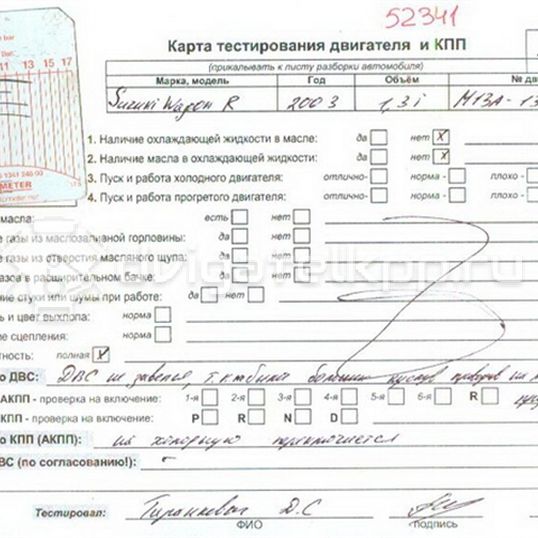 52341
Карта тестирования двигателя и КПП
(прикалывать к листу разборки автомобиля)
Марка, модель Год Объём № дв
Suzuki Wagon R 2003 1,3i M13A-13
11 13 15 17
1. Наличие охлаждающей жидкости в масле: да нет X
2. Наличие масла в охлаждающей жидкости: да нет X
3. Пуск и работа холодного двигателя: отлично- норма - плохо -
4. Пуск и работа прогретого двигателя: отлично- норма - плохо -
масла: есть нет
е газы из маслозаливной горловины: да нет
е газы из отверстия масляного щупа: да нет
газов в расширительном бачке: да нет
ние стуки или шумы при работе: да нет
ь и цвет выхлопа: норма
ие сцепления: норма
тность: полная X
о ДВС: ДВС не
АКПП - проверка на включение: 1-я 2-я 3-я 4-я 5-я 6-я R
КПП - проверка на включение: P R N D
о КПП (АКПП): на холодную переключается
ВС (по согласованию!): -
Тестировал: Д.С
ФИО подпись
METER
dvigatelkpp.ru